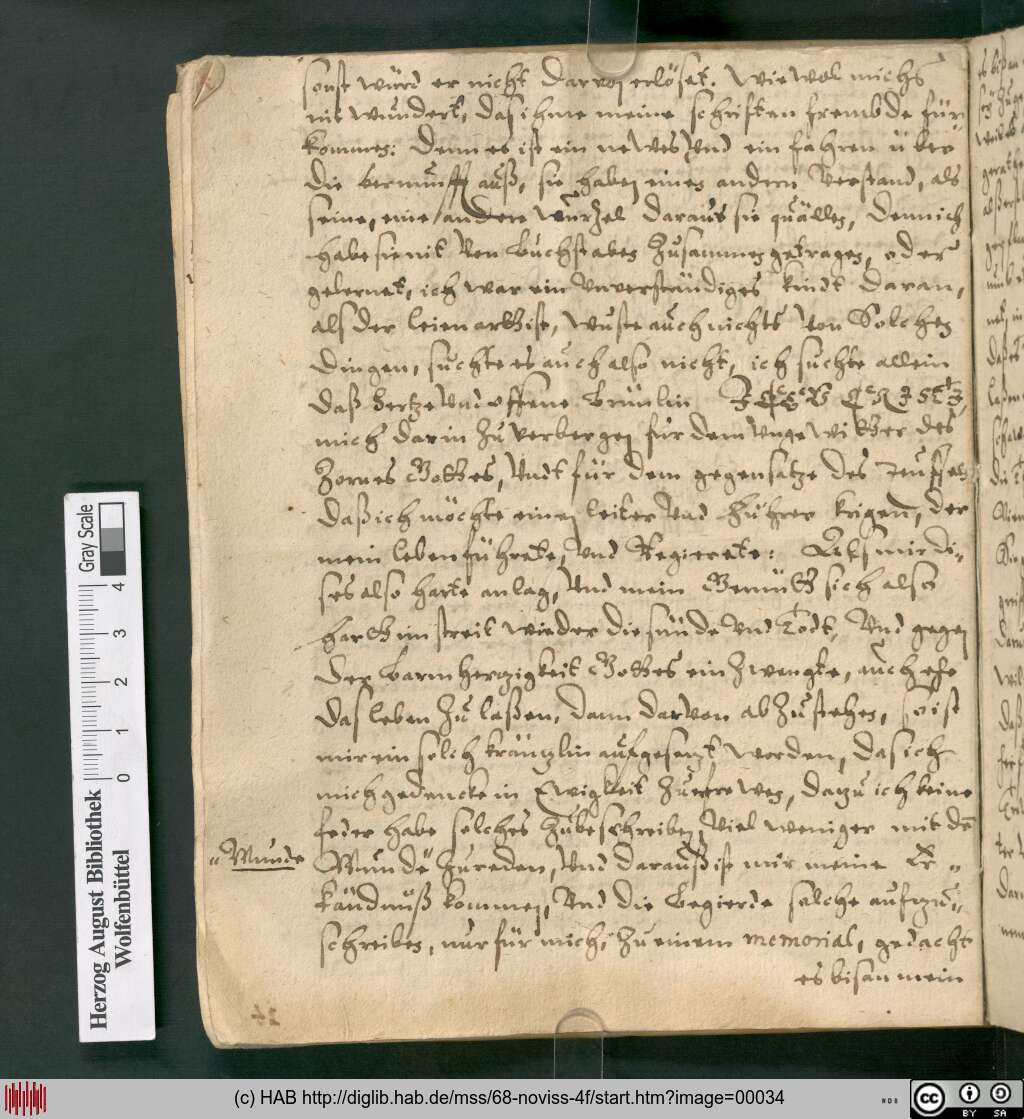 sonst würd er nicht darvon erlöset. Wiewol michs
nit wundert, das ihme meine schriften frembde für
kommen: Denn es ist ein newes Vnd ein fahren über
die vernunfft auß, sie haben einen andern Verstand, als
seine, eine andere Wurzel daraus sie quällen, denn ich
habe sie nit Von Buchstaben Zusammen getragen, oder
gelernet, ich war ein Vnverständiges kindt daran,
als der leien arth ist, Wuste auch nichts Von Solchen
dingen, suchte es auch also nicht, ich suchte allein
daß Hertze Vnd offene Brünlin JESU CHRISTJ,
mich darin Zu verbergen für dem Vngewitther des
Zornes Gottes, Vndt für dem gegensatze des Teuffels
daß ich möchte einen leiter Vnd Führer krigen, der
mein leben führete, Vnd Regierete: Als mir di-
ses also harte anlag, Vnd mein Gemüth sich also
harth im streit wieder die sünde Vnd Todt, Vnd gegen
der barmherzigkeit Gottes ein Zwengte, auch ehe
das leben Zu laßen, dann darvon ab Zu stehen, so ist
mir ein solch kräntzlin aufgesetzt worden, das ich
mich gedencke in Ewigkeit Zu erfrewen, datzu ich keine
feder habe solches Zu beschreiben, Viel weniger mit dē
"Munde
Munde Zu reden, Vnd darauß ist mir meine Er-
kändnüß kommen, Vnd die begierde solche aufzu-
schreiben, nur für mich, Zu einem memorial, gedacht
es bis an mein
Herzog August Bibliothek
Wolfenbüttel
0 1 2 3 4
Gray Scale
(c) HAB http://diglib.hab.de/mss/68-noviss-4f/start.htm?image=00034
cc BY SA